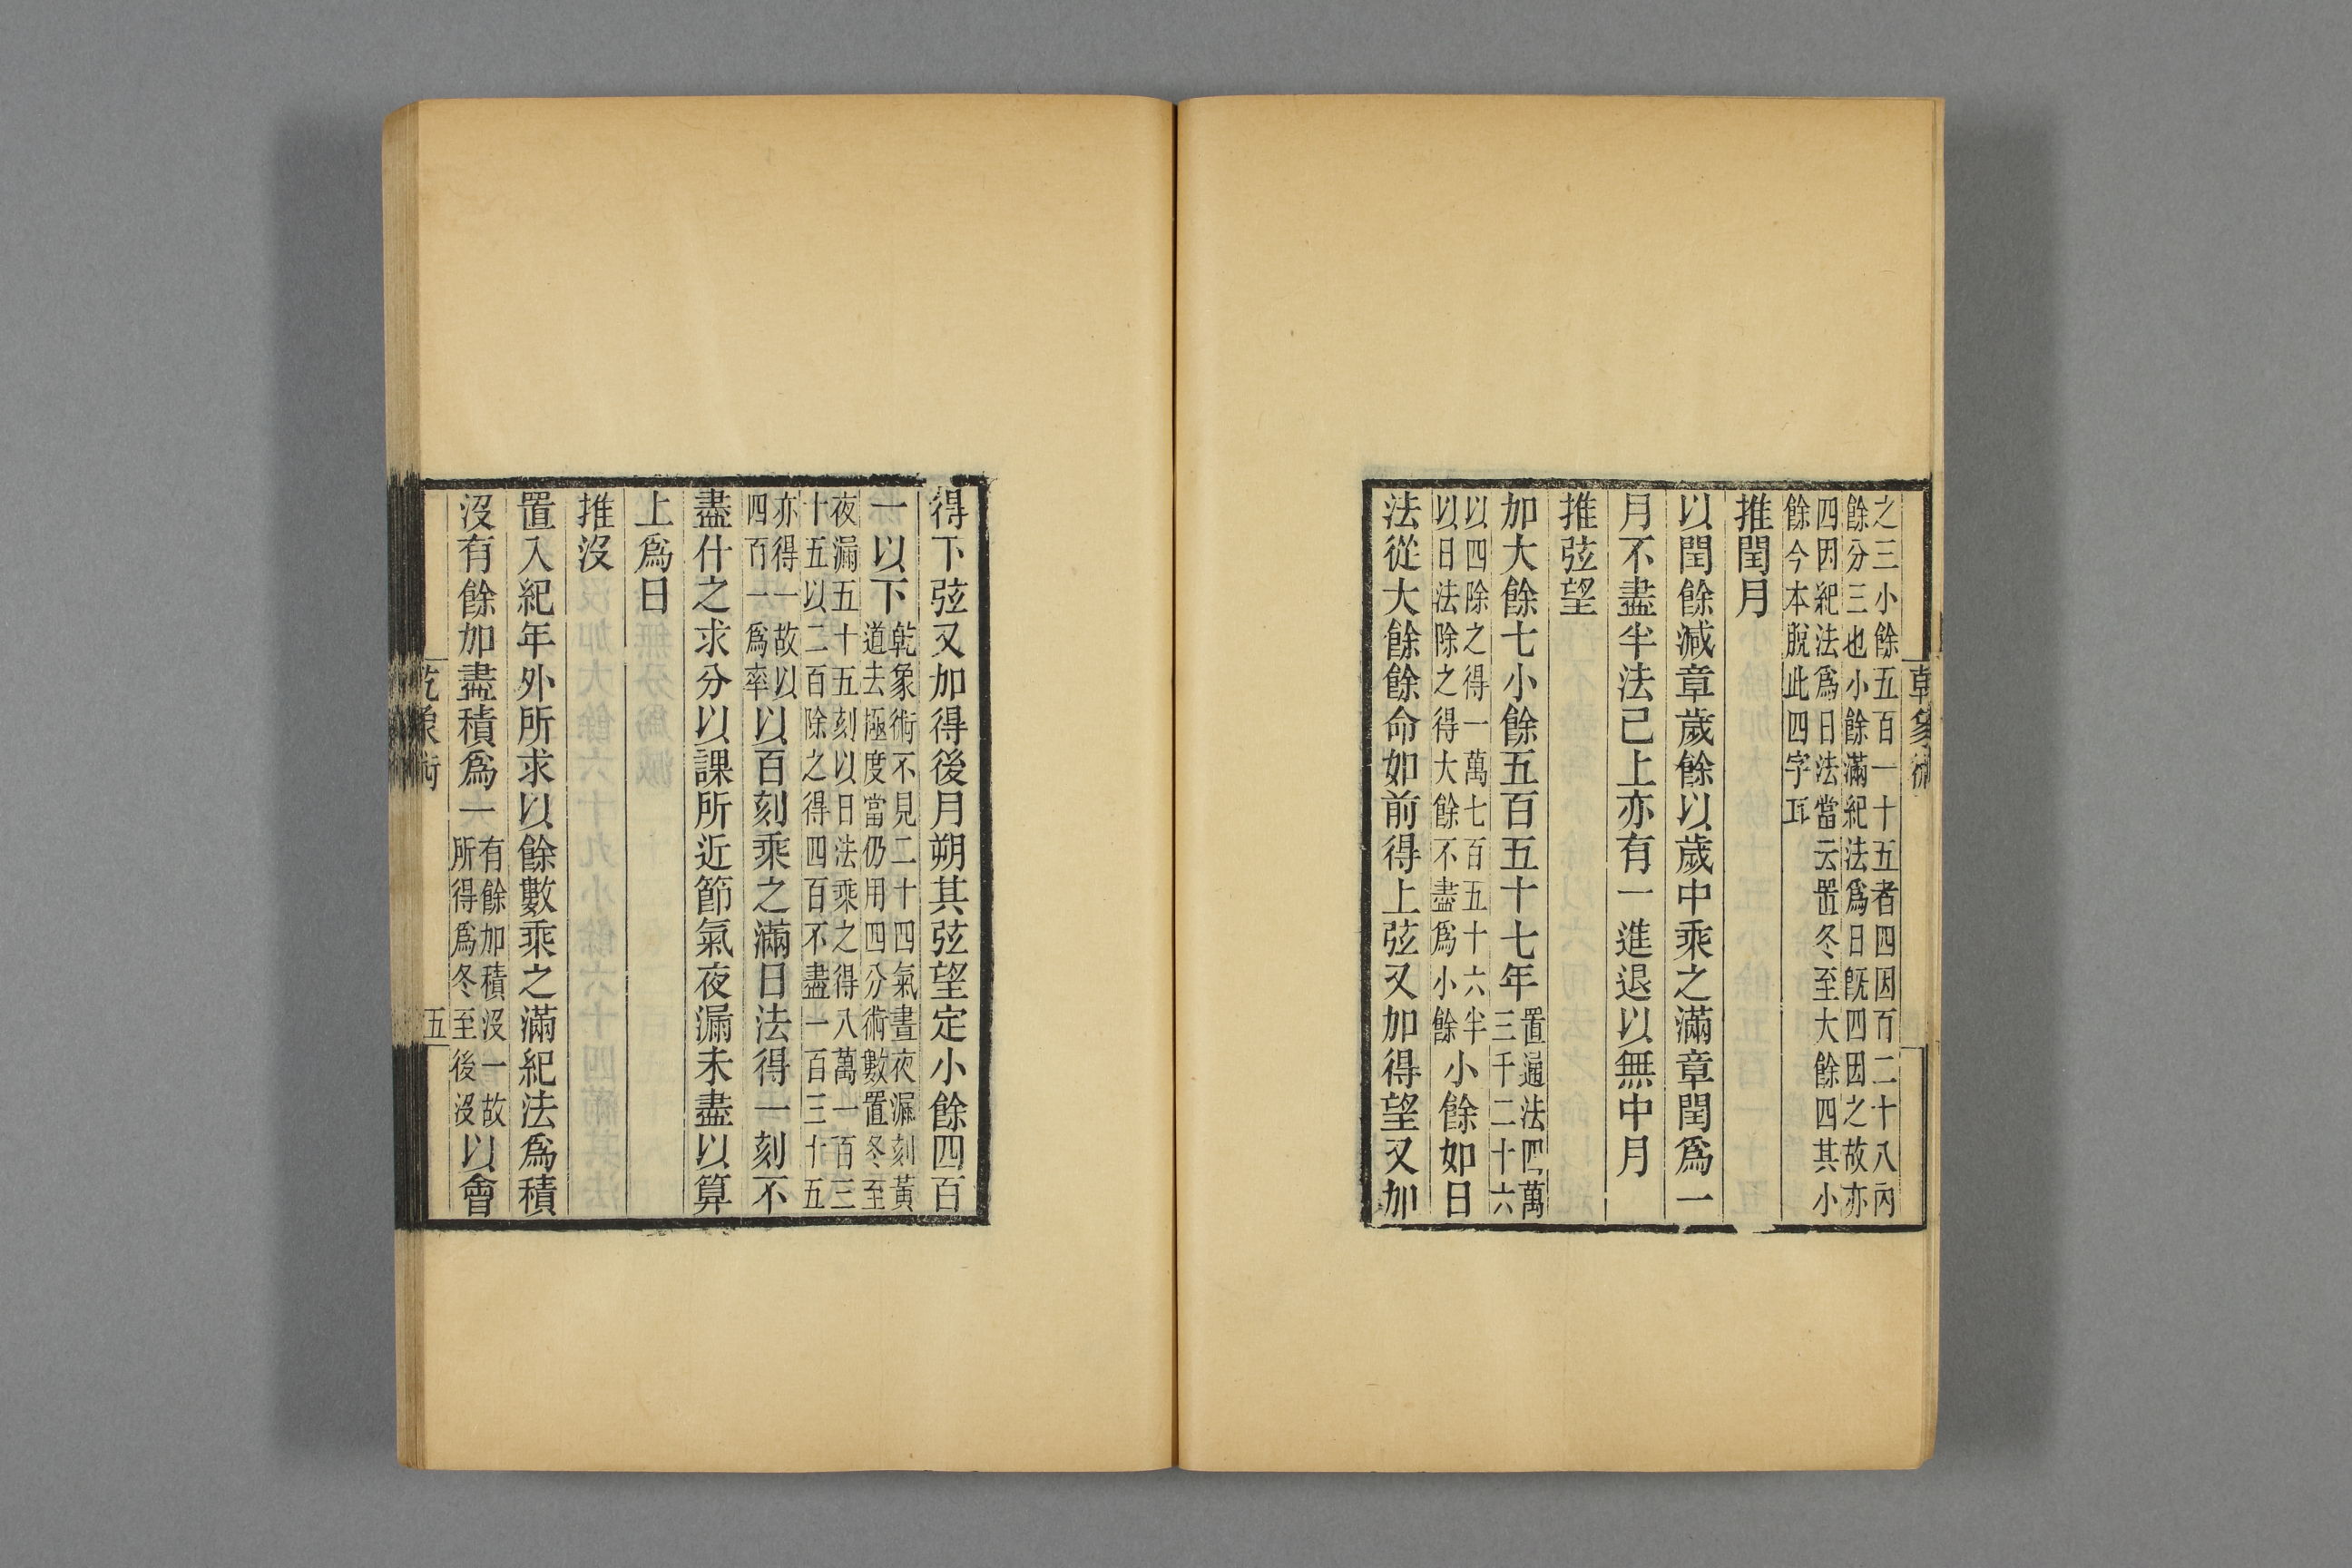 乾象術
之三小餘五百一十五者四因百二十八內
餘分三也小餘滿紀法爲日旣四因之故亦
四因紀法爲日法當云置冬至大餘四其小
餘今本脫此四字耳
推閏月
以閏餘減章歲餘以歲中乘之滿章閏爲一
月不盡半法已上亦有一進退以無中月
推弦望
加大餘七小餘五百五十七年置通法四萬
三千二十六
以四除之得一萬七百五十六半
以日法除之得大餘不盡爲小餘小餘如日
法從大餘餘命如前得上弦又加得望又加
得下弦又加得後月朔其弦望定小餘四百
一以下乾象術不見二十四氣晝夜漏刻黃
道去極度當仍用四分術數置冬至
夜漏五十五刻以日法乘之得八萬一百三
十五以二百除之得四百不盡一百三十五
亦得一故以
四百一爲率以百刻乘之滿日法得一刻不
盡什之求分以課所近節氣夜漏未盡以算
上爲日
推沒
置入紀年外所求以餘數乘之滿紀法爲積
沒有餘加盡積爲一有餘加積沒一故
所得爲冬至後沒以會
乾象術
五